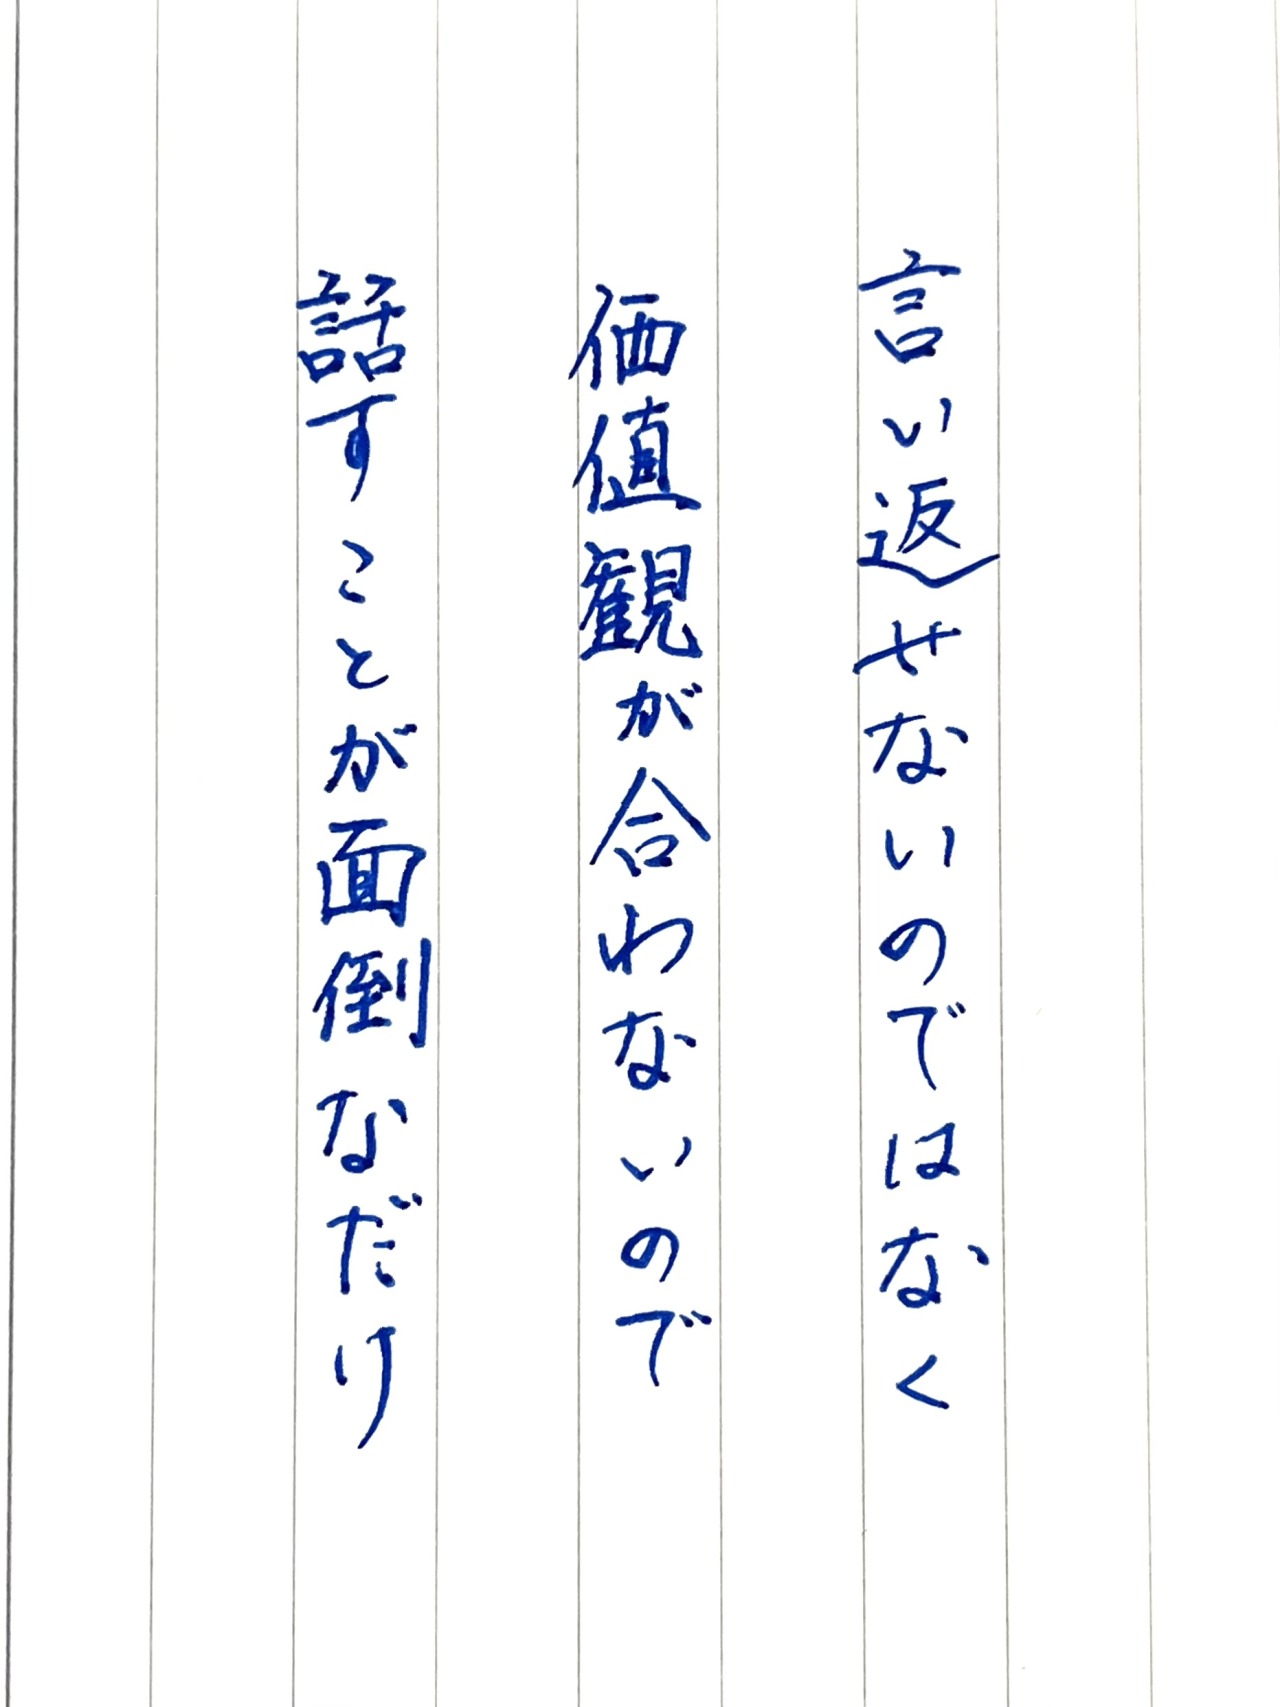 言い返せないのではなく
価値観が合わないので
話すことが面倒なだけ